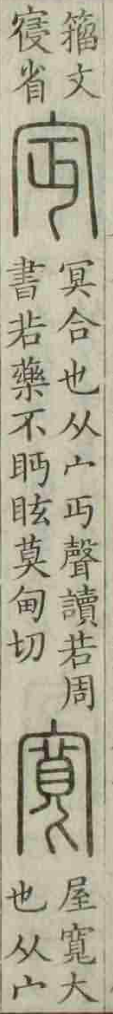 籀文
寑省
冥合也从宀丏聲讀若周
書若藥不眄眩莫甸切
寬
屋寬大
也从宀